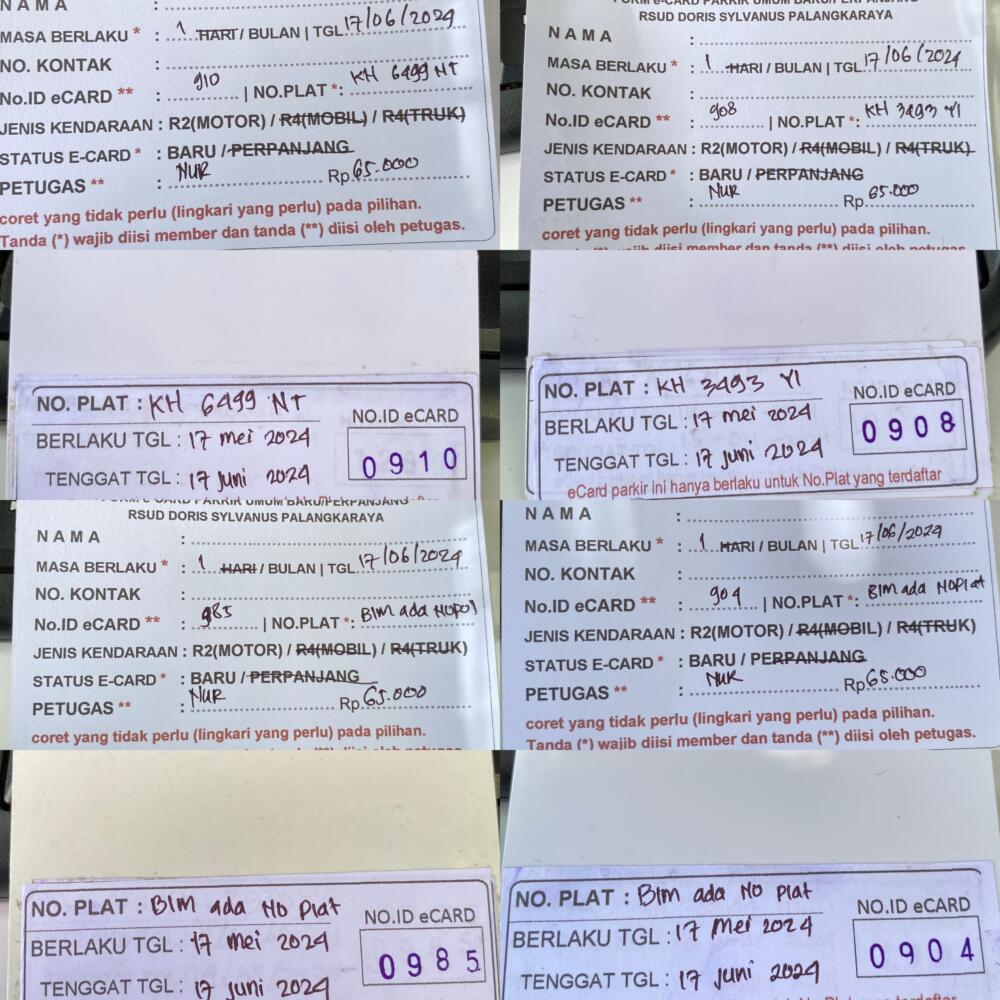 NAMA :
MASA BERLAKU * : 1 HARI / BULAN | TGL 17/06/2024
NO. KONTAK :
No.ID eCARD ** : 910 | NO.PLAT *: KH 6499 NT
JENIS KENDARAAN : R2(MOTOR) / R4(MOBIL) / R4(TRUK)
STATUS E-CARD * : BARU / PERPANJANG
PETUGAS ** : NUR Rp 65.000
coret yang tidak perlu (lingkari yang perlu) pada pilihan.
Tanda (*) wajib diisi member dan tanda (**) diisi oleh petugas.
FORM e-CARD PARKIR UMUM BARU/PERPANJANG
RSUD DORIS SYLVANUS PALANGKARAYA
NAMA :
MASA BERLAKU * : 1 HARI / BULAN | TGL 17/06/2024
NO. KONTAK :
No.ID eCARD ** : 908 | NO.PLAT *: KH 3493 YI
JENIS KENDARAAN : R2(MOTOR) / R4(MOBIL) / R4(TRUK)
STATUS E-CARD * : BARU / PERPANJANG
PETUGAS ** : NUR Rp 65.000
coret yang tidak perlu (lingkari yang perlu) pada pilihan.
Tanda (*) wajib diisi member dan tanda (**) diisi oleh petugas.
NO. PLAT : KH 6499 NT
BERLAKU TGL : 17 mei 2024
TENGGAT TGL : 17 juni 2024
NO.ID eCARD
0910
NO. PLAT : KH 3493 YI
BERLAKU TGL : 17 mei 2024
TENGGAT TGL : 17 juni 2024
NO.ID eCARD
0908
eCard parkir ini hanya berlaku untuk No.Plat yang terdaftar
FORM e-CARD PARKIR UMUM BARU/PERPANJANG
RSUD DORIS SYLVANUS PALANGKARAYA
NAMA :
MASA BERLAKU * : 1 HARI / BULAN | TGL 17/06/2024
NO. KONTAK :
No.ID eCARD ** : 985 | NO.PLAT *: Blm ada NOPOl
JENIS KENDARAAN : R2(MOTOR) / R4(MOBIL) / R4(TRUK)
STATUS E-CARD * : BARU / PERPANJANG
PETUGAS ** : NUR Rp 65.000
coret yang tidak perlu (lingkari yang perlu) pada pilihan.
NAMA :
MASA BERLAKU * : 1 HARI / BULAN | TGL 17/06/2024
NO. KONTAK :
No.ID eCARD ** : 904 | NO.PLAT *: Blm ada NOPlat
JENIS KENDARAAN : R2(MOTOR) / R4(MOBIL) / R4(TRUK)
STATUS E-CARD * : BARU / PERPANJANG
PETUGAS ** : NUR Rp 65.000
coret yang tidak perlu (lingkari yang perlu) pada pilihan.
Tanda (*) wajib diisi member dan tanda (**) diisi oleh petugas.
NO. PLAT : Blm ada No Plat
BERLAKU TGL : 17 mei 2024
TENGGAT TGL : 17 juni 2024
NO.ID eCARD
0985
NO. PLAT : Blm ada No Plat
BERLAKU TGL : 17 mei 2024
TENGGAT TGL : 17 juni 2024
NO.ID eCARD
0904